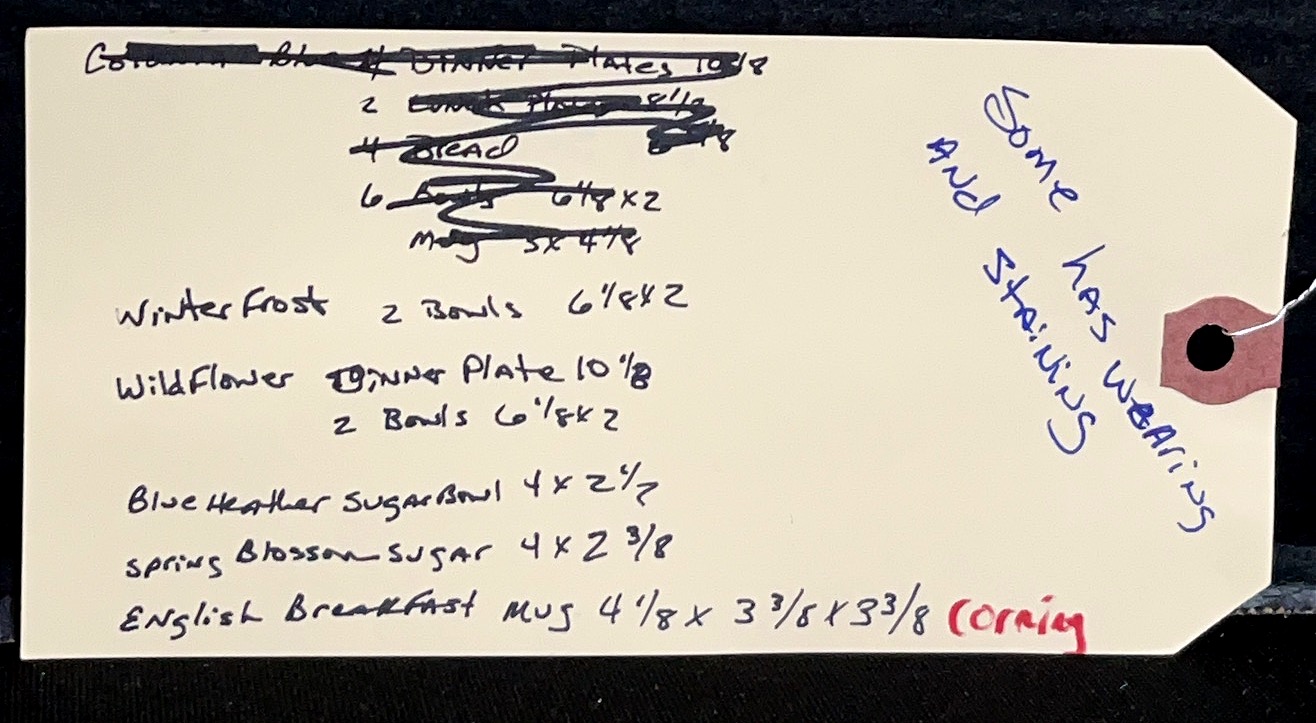 Dinner Plates 10 1/8
2 Lunch Plates 8 1/2
4 Bread
6 Bowls 6 1/8 x 2
Mug 3 x 4 1/8
Winter Frost 2 Bowls 6 1/8 x 2
Wildflower Dinner Plate 10 1/8
2 Bowls 6 1/8 x 2
Blue Heather Sugar Bowl 4 x 2 1/2
Spring Blossom Sugar 4 x 2 3/8
English Breakfast Mug 4 1/8 x 3 3/8 x 3 3/8 Corning
Some has wearing
and staining